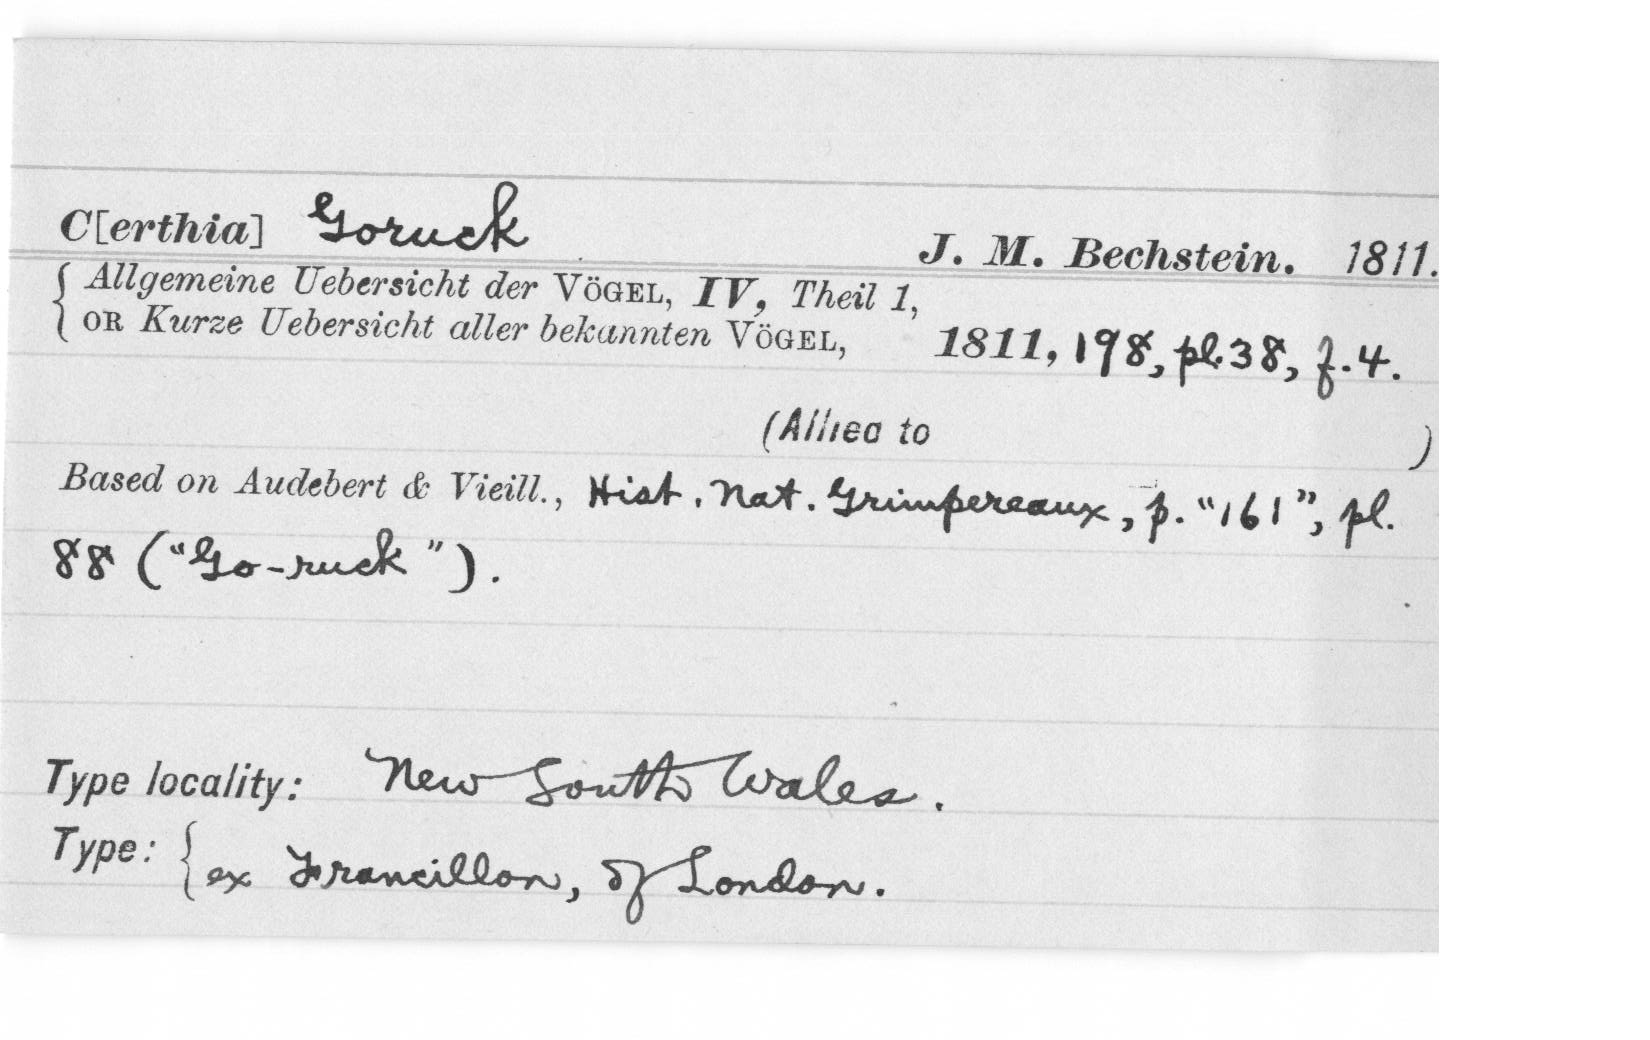 C[erthia] Goruck J. M. Bechstein. 1811.
{ Allgemeine Uebersicht der VÖGEL, IV, Theil 1,
{ OR Kurze Uebersicht aller bekannten VÖGEL, 1811, 198, pl. 38, f. 4.
(Allied to )
Based on Audebert & Vieill., Hist. Nat. Grimpereaux, p. "161", pl.
88 ("Go-ruck").
Type locality: New South Wales.
Type: { ex Francillon, of London.